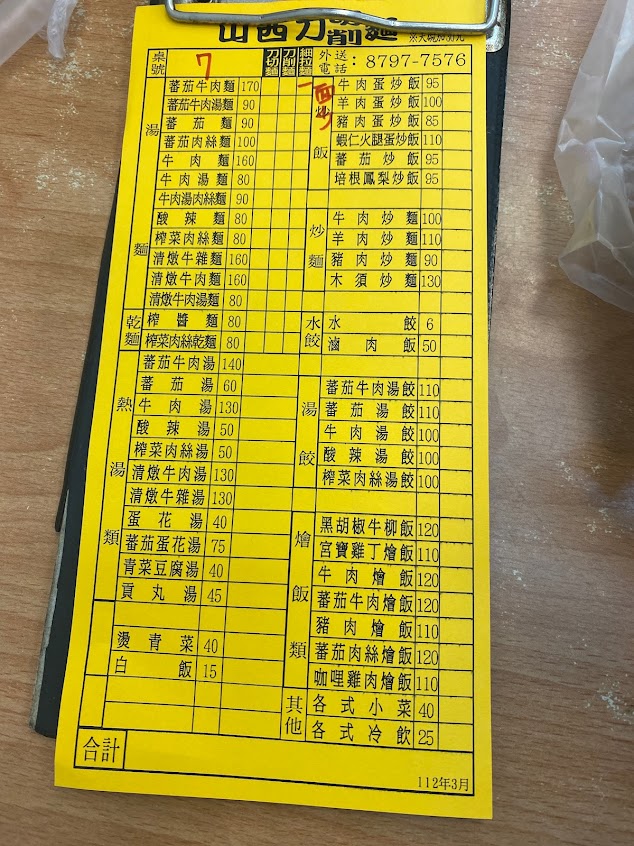 山西刀削麵
※大碗加30元
桌號 7
刀切麵 刀削麵 細拉麵
外送電話：8797-7576
湯麵
蕃茄牛肉麵 170
蕃茄牛肉湯麵 90
蕃茄麵 90
蕃茄肉絲麵 100
牛肉麵 160
牛肉湯麵 80
牛肉湯肉絲麵 90
酸辣麵 80
榨菜肉絲麵 80
清燉牛雜麵 160
清燉牛肉麵 160
清燉牛肉湯麵 80
乾麵
榨醬麵 80
榨菜肉絲乾麵 80
熱湯類
蕃茄牛肉湯 140
蕃茄湯 60
牛肉湯 130
酸辣湯 50
榨菜肉絲湯 50
清燉牛肉湯 130
清燉牛雜湯 130
蛋花湯 40
蕃茄蛋花湯 75
青菜豆腐湯 40
貢丸湯 45
燙青菜 40
白飯 15
飯
牛肉蛋炒飯 95
羊肉蛋炒飯 100
豬肉蛋炒飯 85
蝦仁火腿蛋炒飯 110
蕃茄炒飯 95
培根鳳梨炒飯 95
炒麵
牛肉炒麵 100
羊肉炒麵 110
豬肉炒麵 90
木須炒麵 130
水餃
水餃 6
滷肉飯 50
湯餃
蕃茄牛肉湯餃 110
蕃茄湯餃 110
牛肉湯餃 100
酸辣湯餃 100
榨菜肉絲湯餃 100
燴飯類
黑胡椒牛柳飯 120
宮寶雞丁燴飯 110
牛肉燴飯 120
蕃茄牛肉燴飯 120
豬肉燴飯 110
蕃茄肉絲燴飯 120
咖哩雞肉燴飯 110
其他
各式小菜 40
各式冷飲 25
合計
112年3月